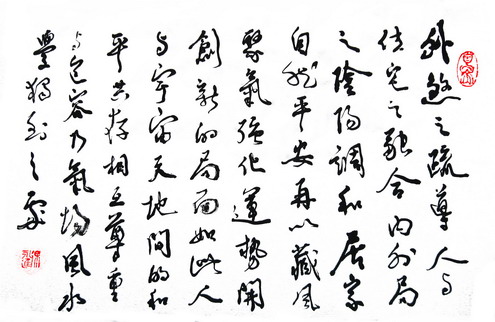 外煞之疏導人与
住宅之融合内外局
之陰陽調和居家
自然平安再以藏風
聚氣強化運勢開
創新的局面如此人
与宇宙天地間的和
平共存相互尊重
与包容乃氣場風水
學獨到之處